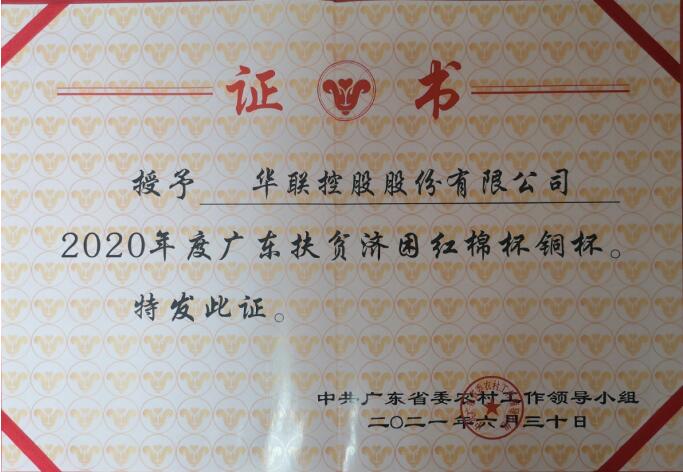 证书
授予 华联控股股份有限公司
2020年度广东扶贫济困红棉杯铜杯。
特发此证。
中共广东省委农村工作领导小组
二〇二一年六月三十日